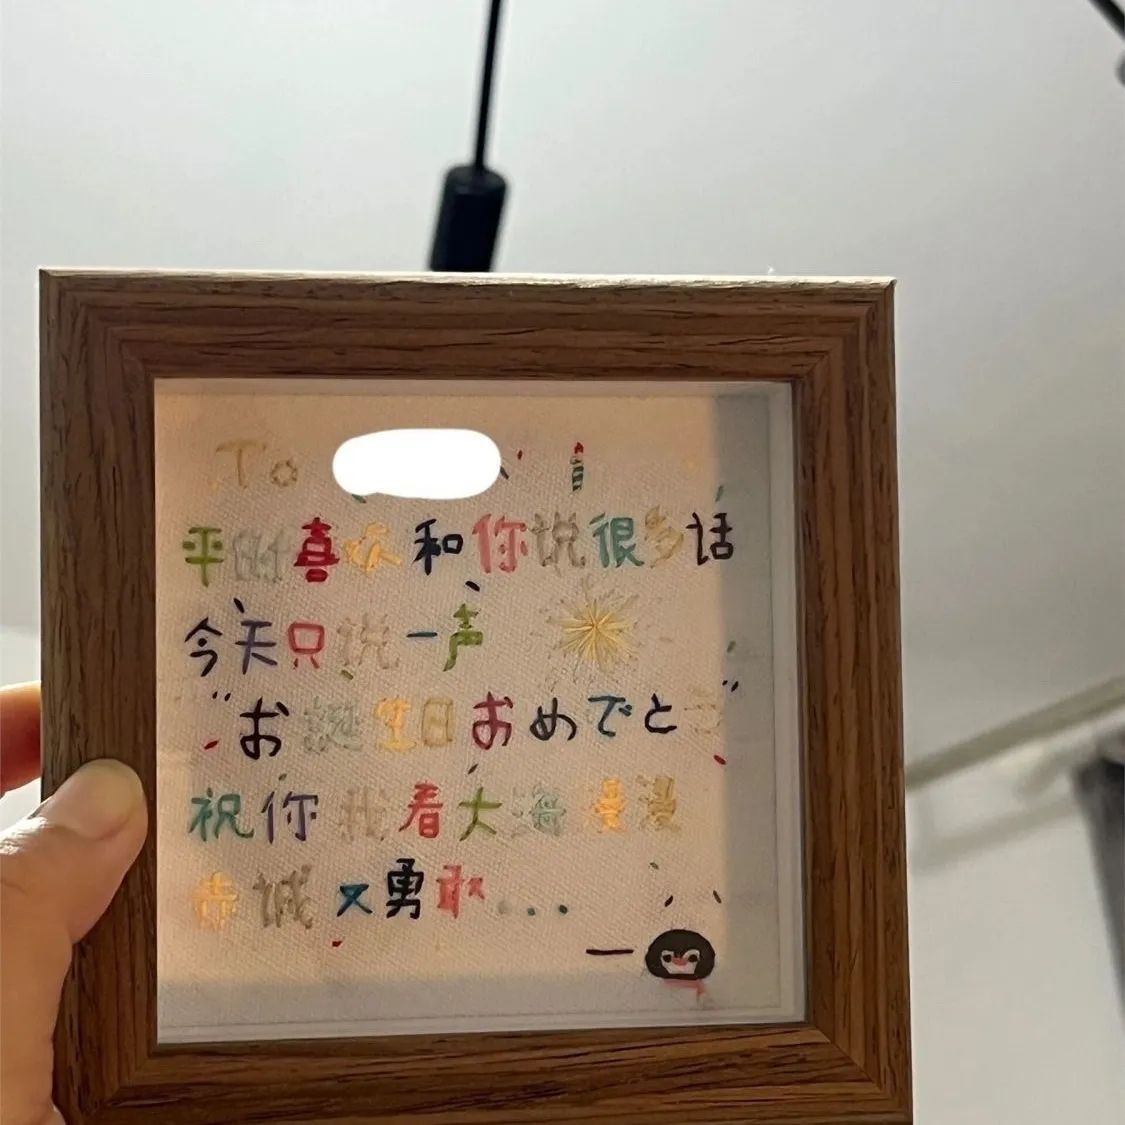 To
平时喜欢和你说很多话
今天只说一声
"お誕生日おめでとう"
祝你着大海漫
赤诚又勇敢...